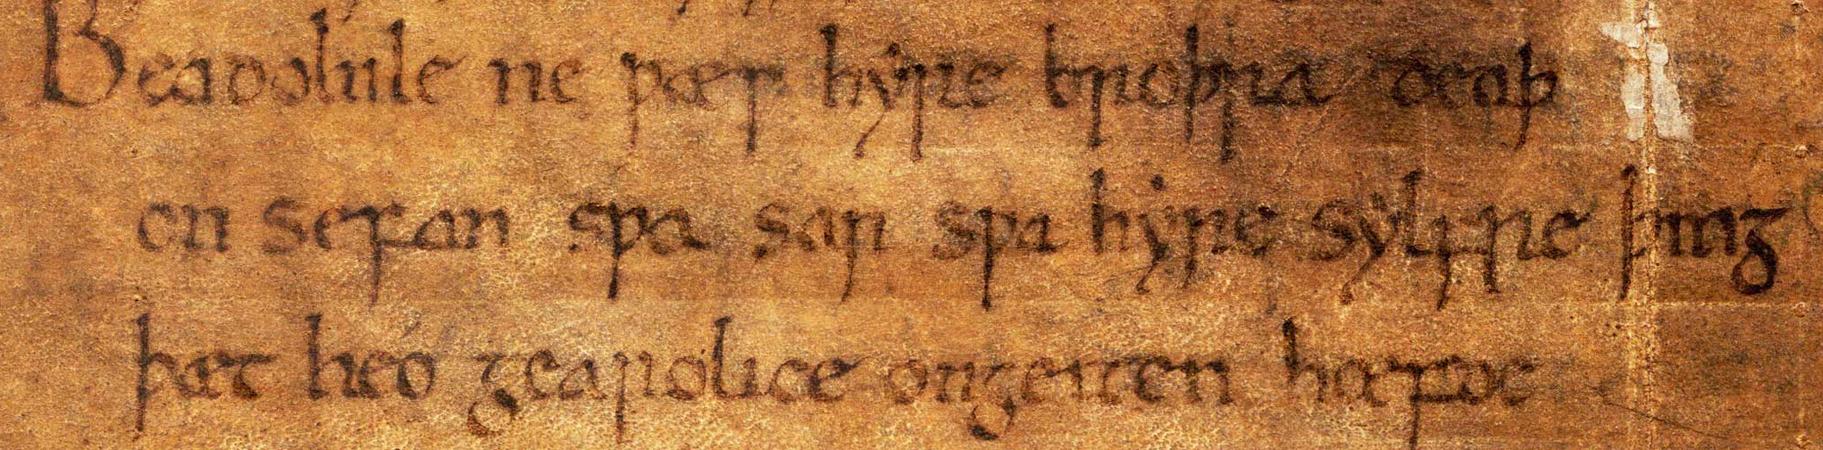 Beadohilde ne ƿæs hyre broþra deaþ
on sefan sƿa sar sƿa hyre sylfre þing
þæt heo gearolice ongieten hæfde